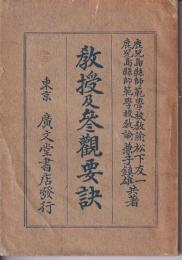 鹿兒島縣師範學校教諭 松下友一
鹿兒島縣師範學校教諭 曾子鎮雄 共著
教授及參觀要訣
東京 廣文堂書店發行